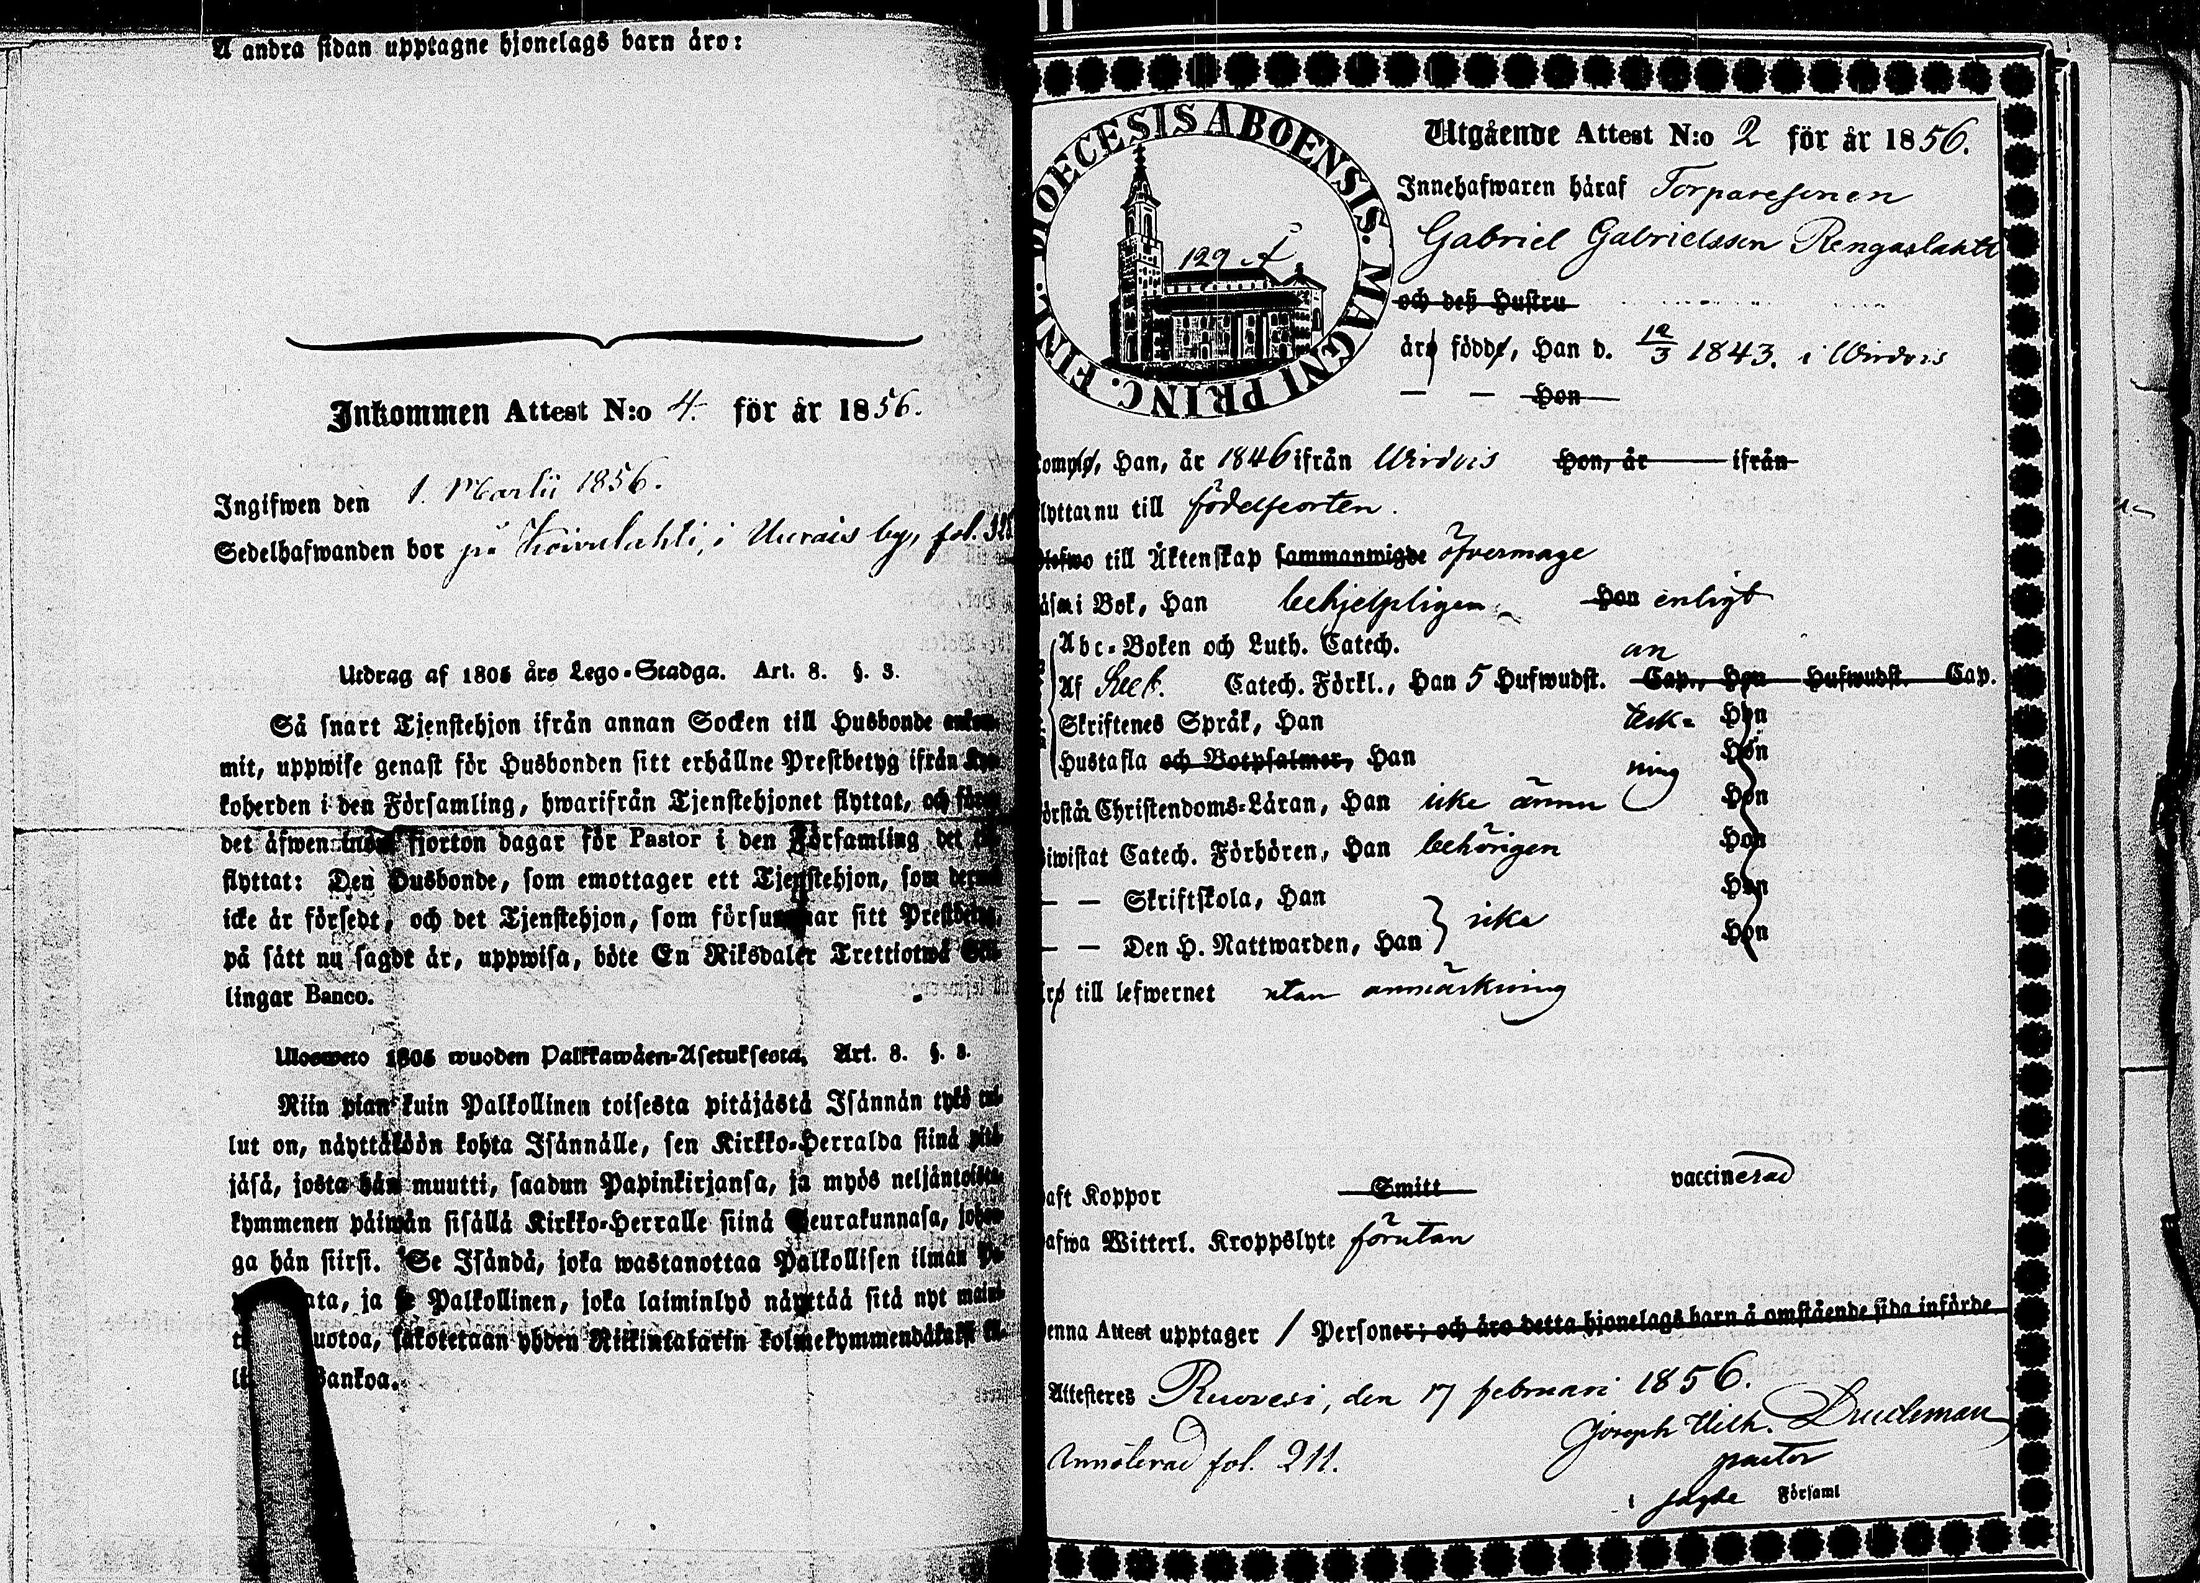 A andra sidan upptagne hjonelags barn äro:
Inkommen Attest N:o 4. för år 1856.
Ingifwen den 1. Martii 1856.
Sedelhafwanden bor på Koivulahti, i Uurais by, fol.
Utdrag af 1805 års Lego-Stadga. Art. 8. §. 3.
Så snart Tjenstehjon ifrån annan Socken till Husbonde
mit, uppwise genast för Husbonden sitt erhållne Prestbetyg ifrån
koherden i den Församling, hwarifrån Tjenstehjonet flyttat, och
det äfwen fjorton dagar för Pastor i den Församling det
flyttat: Den Husbonde, som emottager ett Tjenstehjon, som
icke är försedt, och det Tjenstehjon, som försummar sitt Prestbetyg,
på sätt nu sagdt är, uppwisa, böte En Riksdaler Trettiotwå
lingar Banco.
Ulosweto 1805 wuoden Palkkawäen-Asetuksesta. Art. 8. §. 3.
Niin pian kuin Palkollinen toisesta pitäjästä Isännän tykö
lut on, näyttäköön kohta Isännälle, sen Kirkko-Herralda siinä
jäsä, josta hän muutti, saadun Papinkirjansa, ja myös
kymmenen päiwän sisällä Kirkko-Herralle siinä Seurakunnasa,
ga hän siirsi. Se Isändä, joka wastanottaa Palkollisen ilman
ata, ja se Palkollinen, joka laiminlyö näyttää sitä nyt
uotoa, sakotetaan yhden Rikkintalarin
Bankoa.
DIOECESIS ABOENSIS. MAGNI PRINC. FINL.
129
Utgående Attest N:o 2 för år 1856.
Innehafwaren häraf Torparesonen
Gabriel Gabrielsson Rengaslahti
och deß Hustru
äro födde, Han d. 12/3 1843. i Wirdois
— — Hon
Han, år 1846 ifrån Wirdois Hon, år ifrån
nu till födelseorten.
till Äktenskap sammanwigde öfvermage
i Bok, Han behjelpligen Hon enligt
Abc-Boken och Luth. Catech. an
Af Sveb. Catech. Förkl., Han 5 Hufwudst. Cap., Hon Hufwudst. Cap.
Skriftenes Språk, Han teck= Hon
Hustafla och Botpsalmer, Han ning Hon
Christendoms-Läran, Han icke ännu Hon
Catech. Förhören, Han behörigen Hon
— — Skriftskola, Han Hon
— — Den H. Nattwarden, Han } icke Hon
till lefwernet utan anmärkning
haft Koppor Smitt vaccinerad
hafwa Witterl. Kroppslyte förutan
Denna Attest upptager 1 Personer; och äro detta hjonelags barn å omstående sida införde
Attesteres Ruovesi, den 17 februari 1856.
Joseph Wilh. Durchman
pastor
Annoterad fol. 211.
i sagde Församl